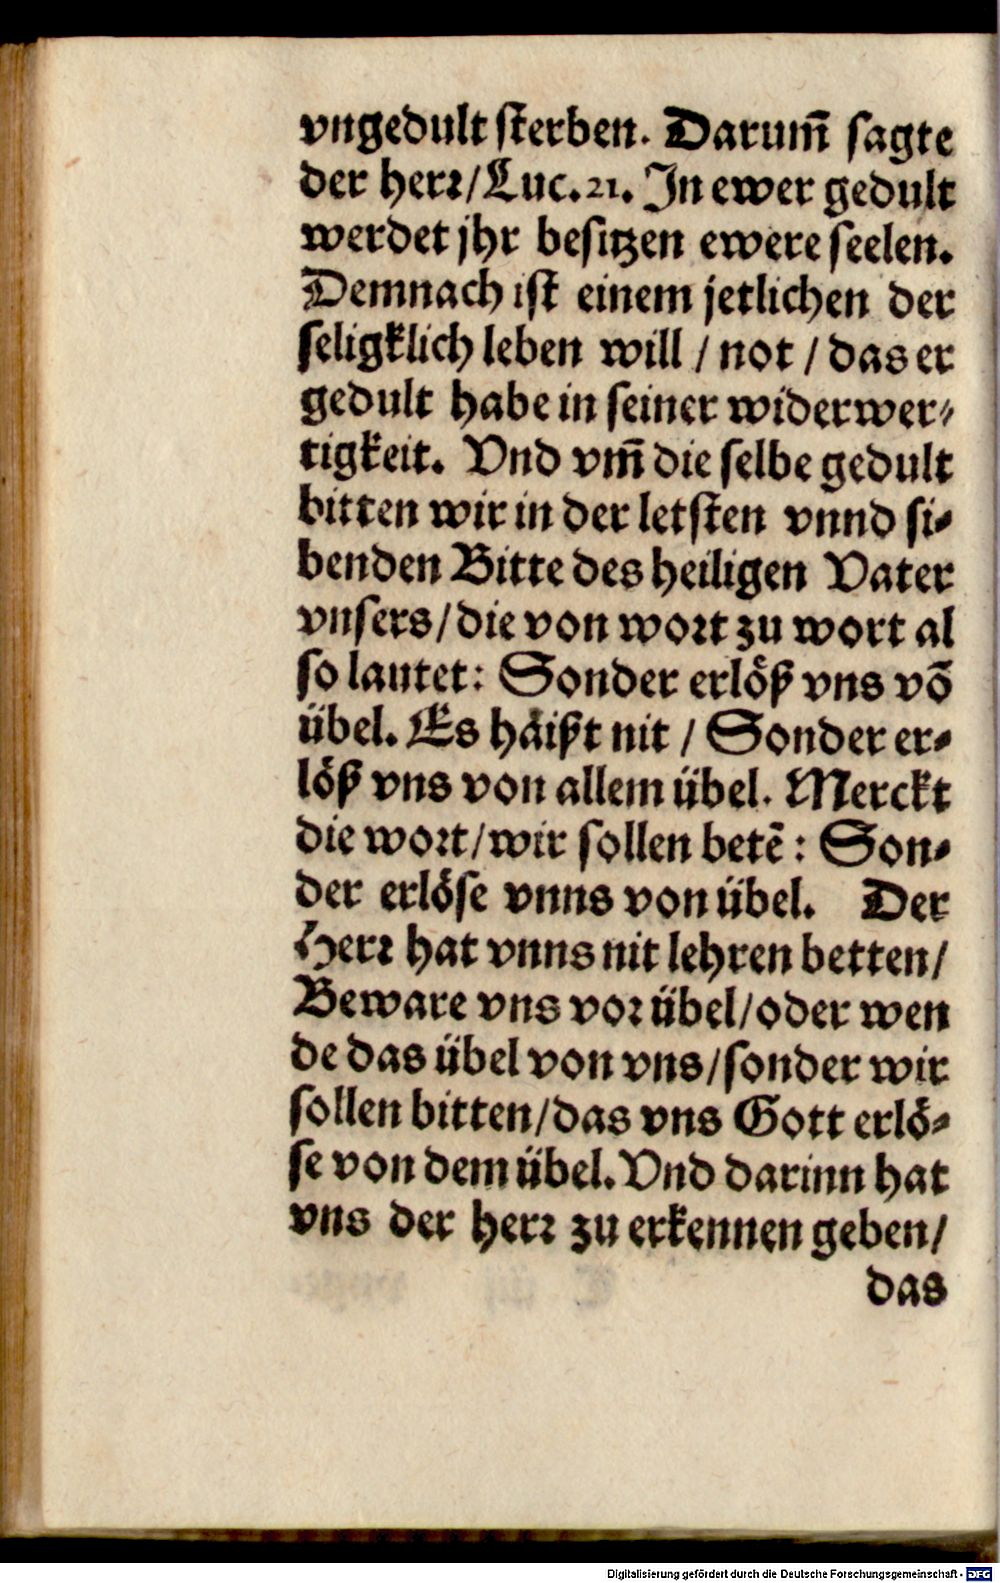 vngedult sterben. Darum̃ sagte
der herr/Luc.21. In ewer gedult
werdet jhr besitzen ewere seelen.
Demnach ist einem jetlichen der
seligklich leben will / not / das er
gedult habe in seiner widerwer⸗
tigkeit. Vnd vm̃ die selbe gedult
bitten wir in der letsten vnnd si⸗
benden Bitte des heiligen Vater
vnsers/die von wort zu wort al
so lautet: Sonder erlöß vns võ
übel. Es häißt nit / Sonder er⸗
löß vns von allem übel. Merckt
die wort/wir sollen betẽ: Son⸗
der erlöse vnns von übel. Der
Herr hat vnns nit lehren betten/
Beware vns vor übel/oder wen
de das übel von vns/sonder wir
sollen bitten/das vns Gott erlö⸗
se von dem übel. Vnd darinn hat
vns der herr zu erkennen geben/
das
Digitalisierung gefördert durch die Deutsche Forschungsgemeinschaft - DFG